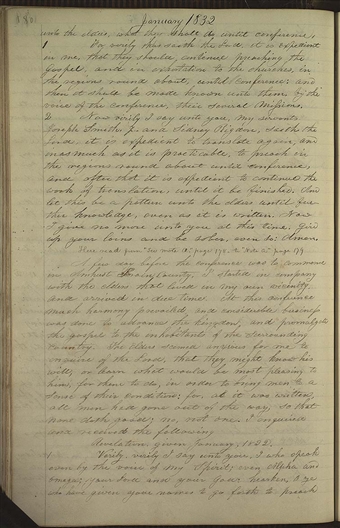 180
January 1832
unto the elders, what they shall do, until conference.
1 For verily thus saith the Lord, it is expedient
in me, that they should continue preaching the
Gospel, and in exhortation to the churches, in
the regions round about, until conference: and
then it shall be made known unto them, by the
voice of the conference, their several missions.
2 Now verily I say unto you, my servants
Joseph Smith Jr. and Sidney Rigdon, saith the
Lord, it is expedient to translate again, and
inasmuch as it is practicable, to preach in
the regions round about until conference,
and after that it is expedient to continue the
work of translation, until it be finished. And
let this be a pattern unto the elders until fur-
ther knowledge, even as it is written. Now
I give no more unto you at this time. Gird
up your loins and be sober, even so: Amen.
Here
day before the conference was to commence
in Amherst Lorain County, I started in company
with the elders that lived in my own vicinity,
and arrived in due time. At this conference
much harmony prevailed, and considerable business
was done to advance the kingdom, and promulgate
the gospel to the inhabitants of the surrounding
country. The elders seemed anxious for me to
enquire of the Lord, that they might know his
will, or learn what would be most pleasing to
him, for them to do, in order to bring men to a
sense of their condition; for, as it was written,
all men had gone out of the way, so that
none doth good; no, not one. I enquired
and received the following
Revelation given January, 1832.
1 Verily, verily I say unto you, I who speak
even by the voice of my Spirit; even Alpha and
Omega, your Lord and your God: hearken, O ye
who have given your names to go forth to preach